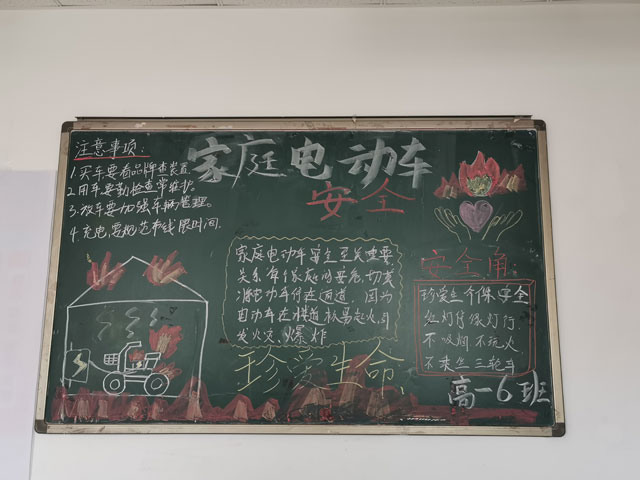 家庭电动车
安全
注意事项:
1.买车要看品牌查装置.
2.用车要勤检查常维护.
3.放车要加强车辆管理.
4.充电要规范有线限时间.
家庭电动车安全至关重要
关系每个家庭的安危,切莫
将电动车停在通道 因为
电动车在楼道极易起火,引
发火灾、爆炸
珍爱生命
安全角
珍爱生命保安全
红灯停绿灯行
不吸烟 不玩火
不乘坐三轮车
高一6班